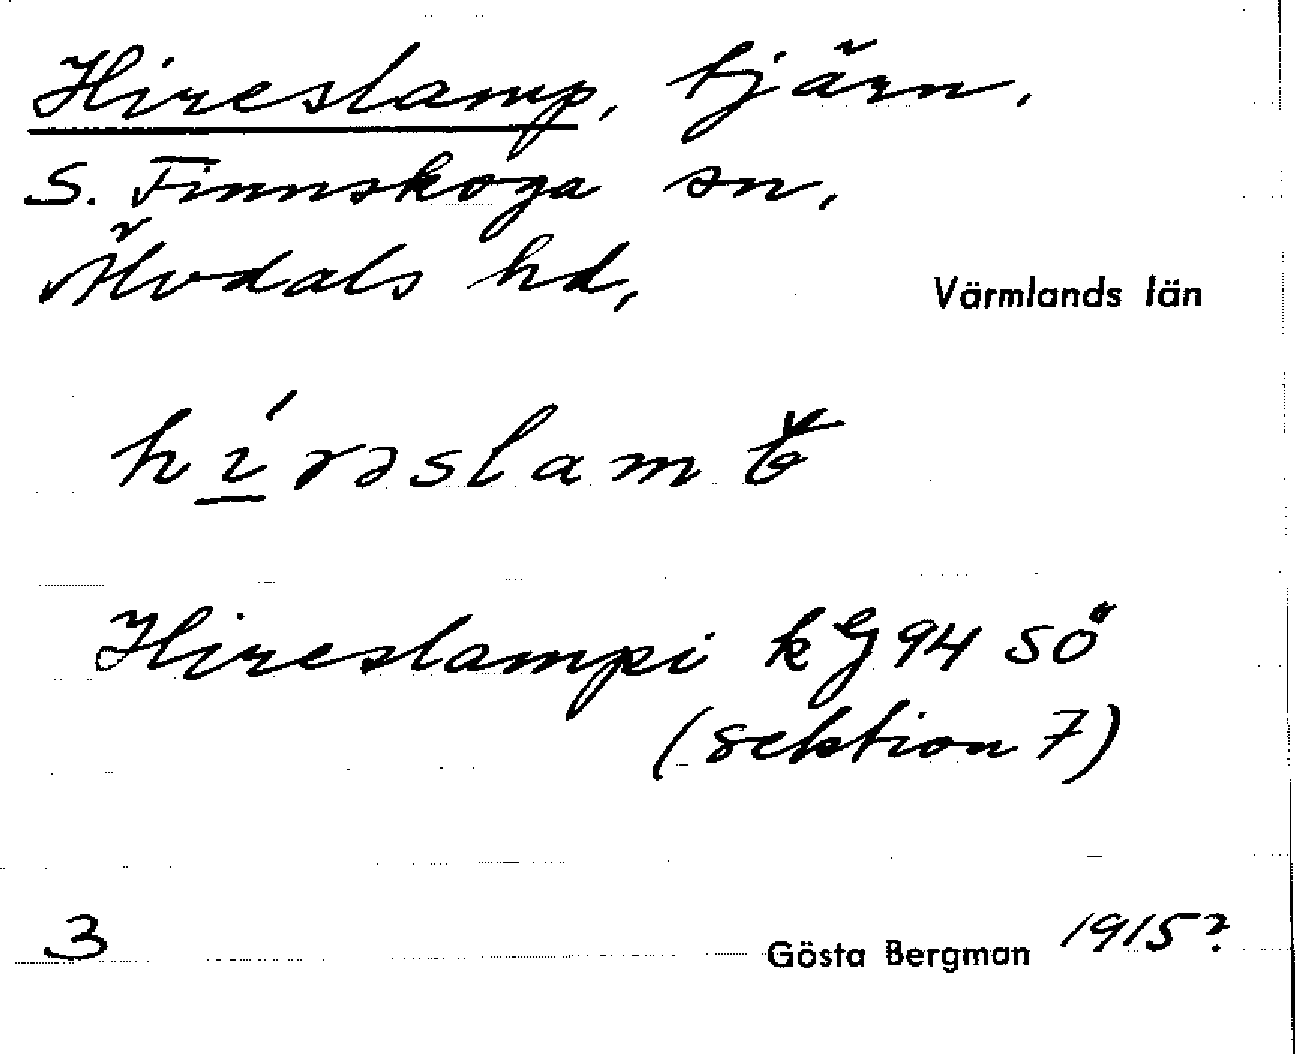 Hireslamp, tjärn,
S. Finnskoga sn,
Älvdals hd,
Värmlands län
Hireslampi kg 94 SÖ
(sektion 7)
3
Gösta Bergman 1915?